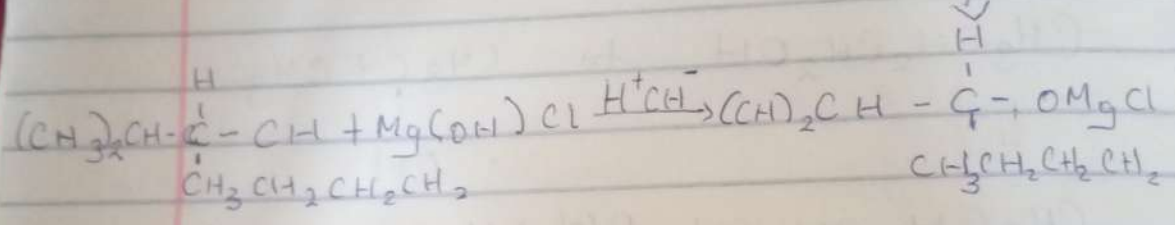 H
H
(CH₃)₂CH-C-CH + Mg(OH)Cl H⁺CH⁻→ (CH)₂CH - C - OMgCl
CH₃CH₂CH₂CH₂
CH₃CH₂CH₂CH₂